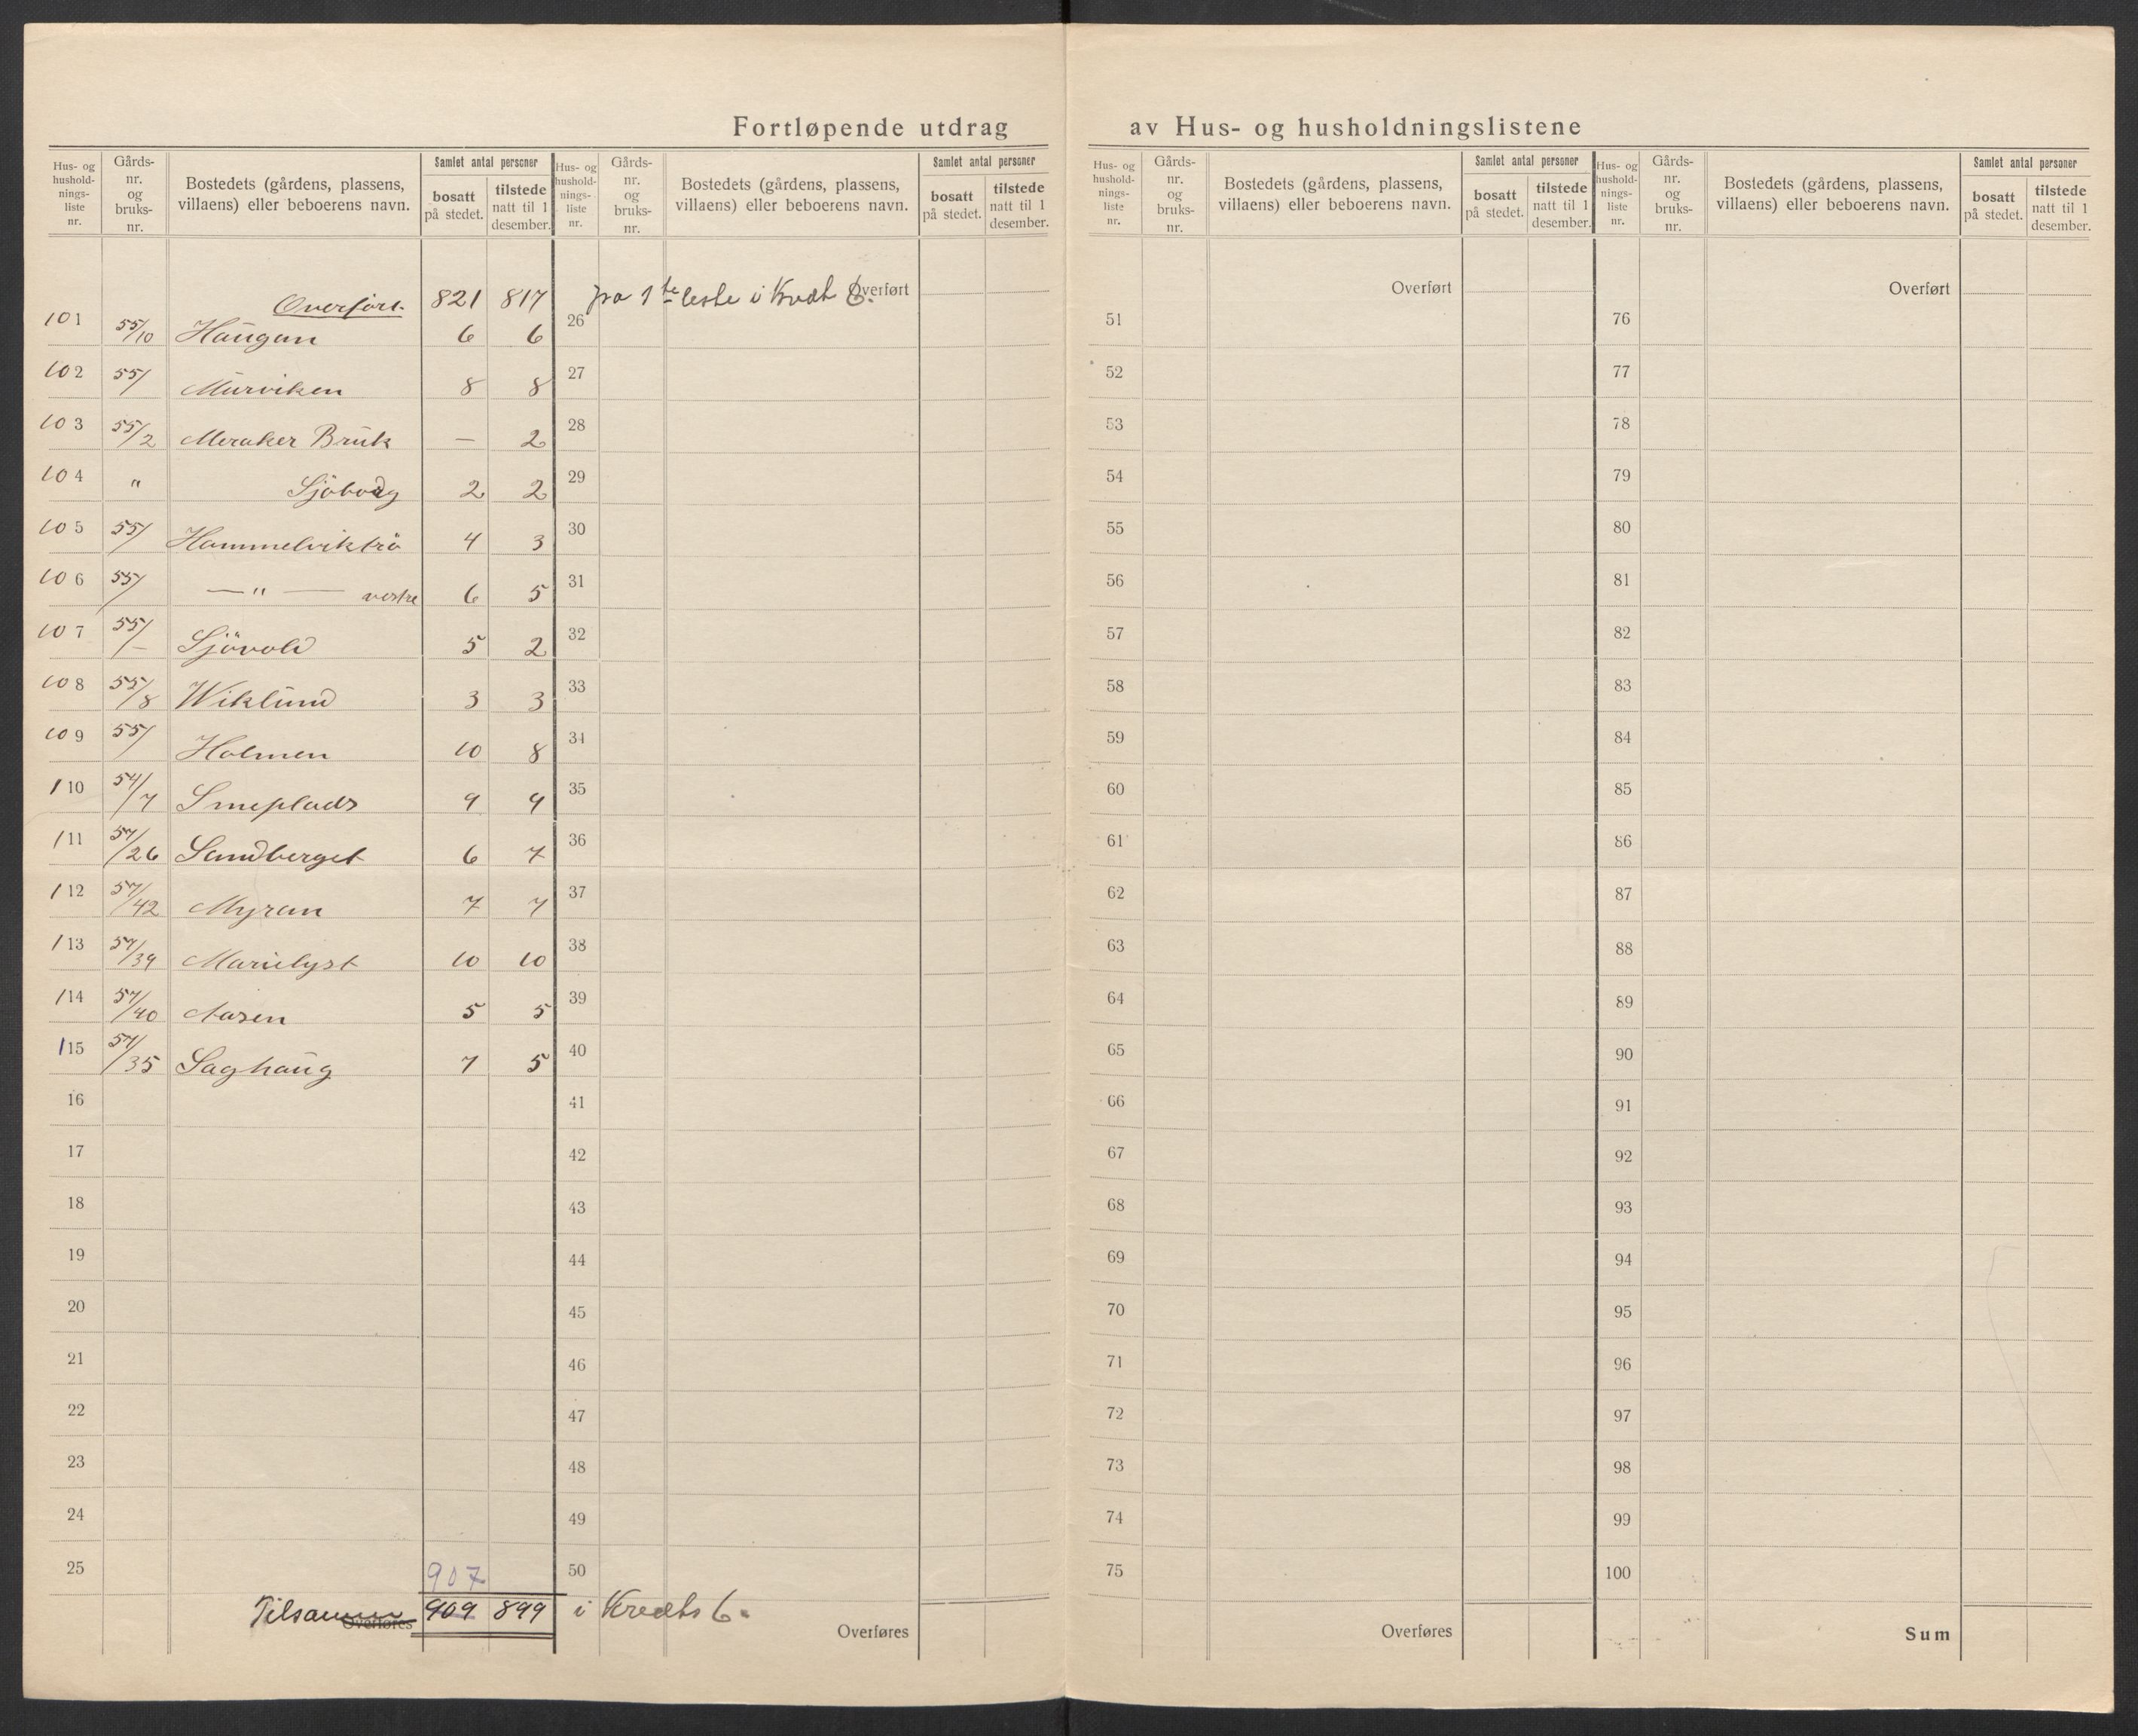 Fortløpende utdrag av Hus- og husholdningslistene
Hus- og hushold-nings-liste nr. | Gårds-nr. og bruks-nr. | Bostedets (gårdens, plassens, villaens) eller beboerens navn. | Samlet antal personer | bosatt på stedet. | tilstede natt til 1 desember.
Overført 821 817 fra 1ste liste i Kreds 6.
101 55/10 Haugan 6 6
102 55/ Murviken 8 8
103 55/2 Meraker Bruk — 2
104 " Sjöborg 2 2
105 55/ Hommelviktrö 4 3
106 55/ —"— vestre 6 5
107 55/- Sjövold 5 2
108 55/8 Wiklund 3 3
109 55/ Holmen 10 8
110 54/7 Smeplads 9 9
111 57/26 Sandberget 6 7
112 57/42 Myran 7 7
113 57/39 Marielyst 10 10
114 57/40 Aasen 5 5
115 57/35 Saghaug 7 5
16
17
18
19
20
21
22
23
24
25 907
Tilsammen Overføres 909 899 i Kreds 6.
Hus- og hushold-nings-liste nr. | Gårds-nr. og bruks-nr. | Bostedets (gårdens, plassens, villaens) eller beboerens navn. | Samlet antal personer | bosatt på stedet. | tilstede natt til 1 desember.
Overført
26
27
28
29
30
31
32
33
34
35
36
37
38
39
40
41
42
43
44
45
46
47
48
49
50
Overføres
Hus- og hushold-nings-liste nr. | Gårds-nr. og bruks-nr. | Bostedets (gårdens, plassens, villaens) eller beboerens navn. | Samlet antal personer | bosatt på stedet. | tilstede natt til 1 desember.
Overført
51
52
53
54
55
56
57
58
59
60
61
62
63
64
65
66
67
68
69
70
71
72
73
74
75
Overføres
Hus- og hushold-nings-liste nr. | Gårds-nr. og bruks-nr. | Bostedets (gårdens, plassens, villaens) eller beboerens navn. | Samlet antal personer | bosatt på stedet. | tilstede natt til 1 desember.
Overført
76
77
78
79
80
81
82
83
84
85
86
87
88
89
90
91
92
93
94
95
96
97
98
99
100
Sum